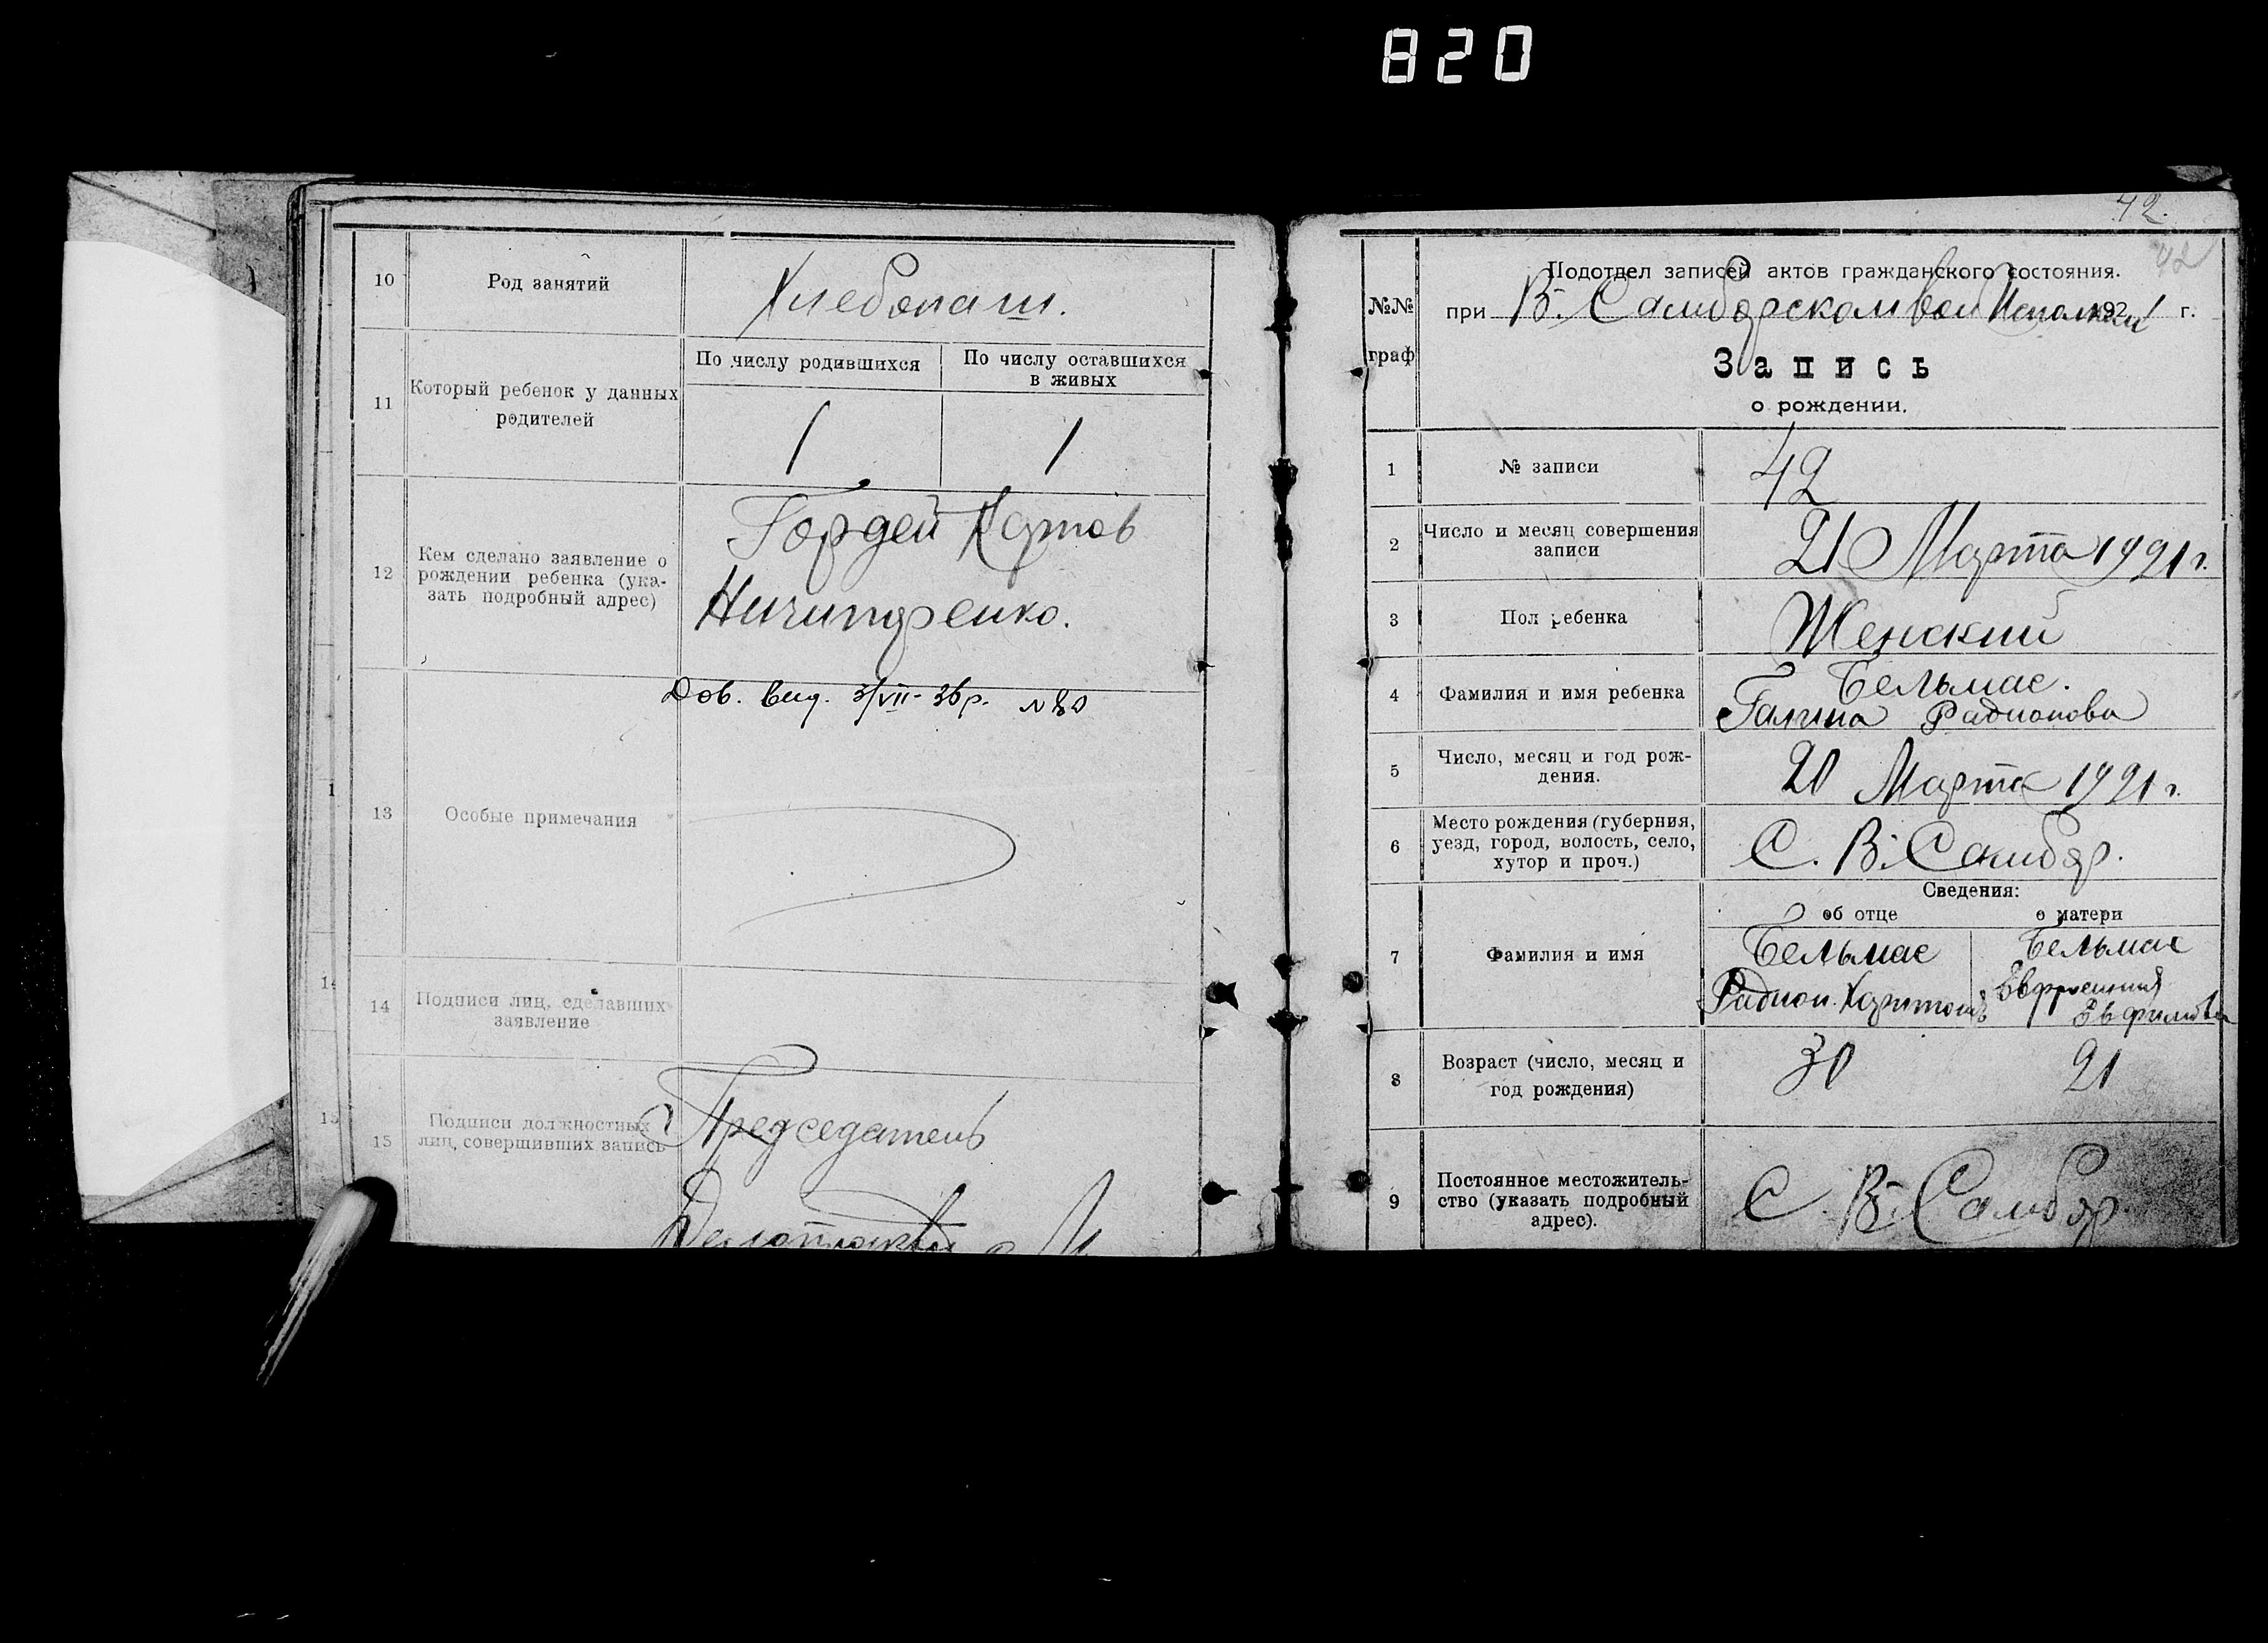 820
10
Род занятий
Хлебопаш.
11
Который ребенок у данных
родителей
По числу родившихся
По числу оставшихся
в живых
1
1
12
Кем сделано заявление о
рождении ребенка (ука-
зать подробный адрес)
Гордей
Ничипоренко.
Дов. вид. 3/VII-36р. №80
13
Особые примечания
14
Подписи лиц, сделавших
заявление
15
Подписи должностных
лиц, совершивших запись
Председатель
42.
42
№№
граф
Подотдел записей актов гражданского состояния.
при В. Самборском вол 1921 г.
Запись
о рождении.
1
№ записи
42
2
Число и месяц совершения
записи
21 Марта 1921 г.
3
Пол ребенка
Женский
4
Фамилия и имя ребенка
Бельмас.
Галина Радионова
5
Число, месяц и год рож-
дения.
20 Марта 1921 г.
6
Место рождения (губерния,
уезд, город, волость, село,
хутор и проч.)
С. В. Самбор.
Сведения:
об отце
о матери
7
Фамилия и имя
Бельмас
Радион Харитонов
Бельмас
8
Возраст (число, месяц и
год рождения)
30
21
9
Постоянное местожитель-
ство (указать подробный
адрес).
С. В. Самбор.